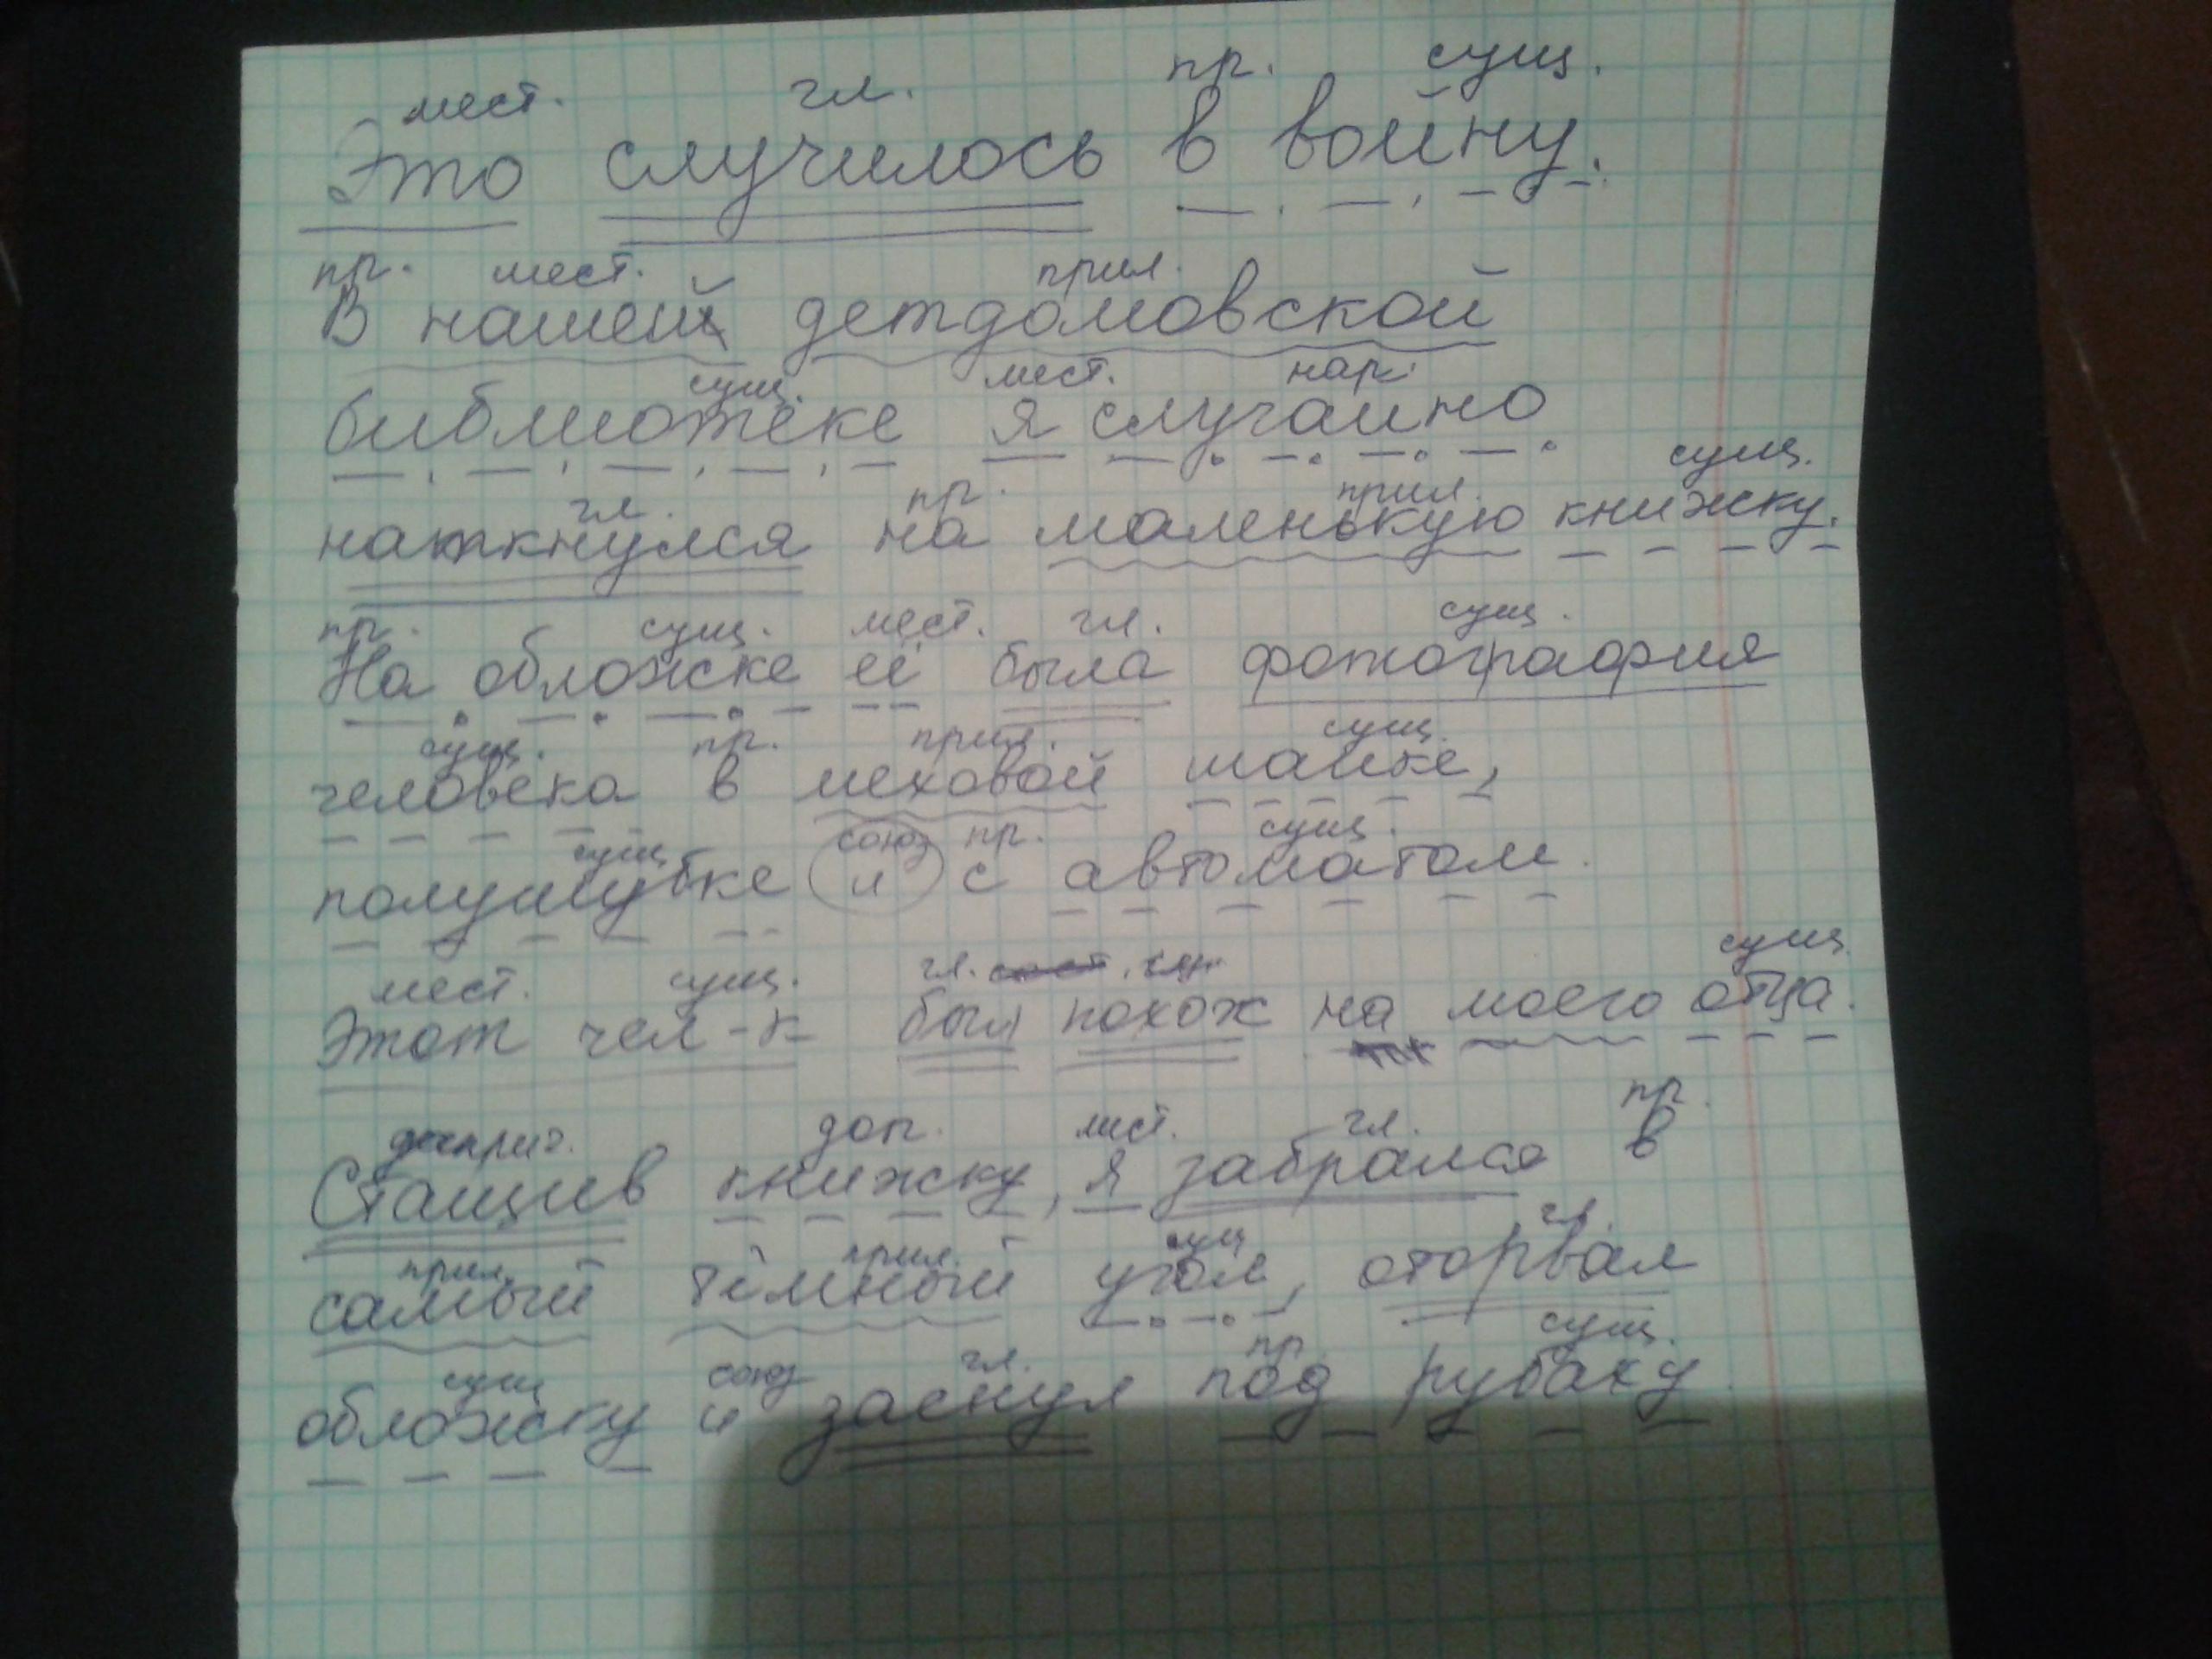 мест. гл. пр. сущ.
Это случилось в войну.
пр. мест. прил.
В нашей детдомовской
сущ. мест. нар.
библиотеке я случайно
гл. пр. прил. сущ.
наткнулся на маленькую книжку.
пр. сущ. мест. гл. сущ.
На обложке её была фотография
сущ. пр. прил. сущ.
человека в меховой шапке,
сущ союз пр. сущ.
полушубке и с автоматом.
мест. сущ. гл. сущ.
Этот чел-к был похож на моего отца.
дееприч. доп. мест. гл. пр.
Стащив книжку, я забрался в
прил. прил. сущ гл.
самый тёмный угол, оторвал
сущ союз гл. пр сущ.
обложку и заснул под рубаху